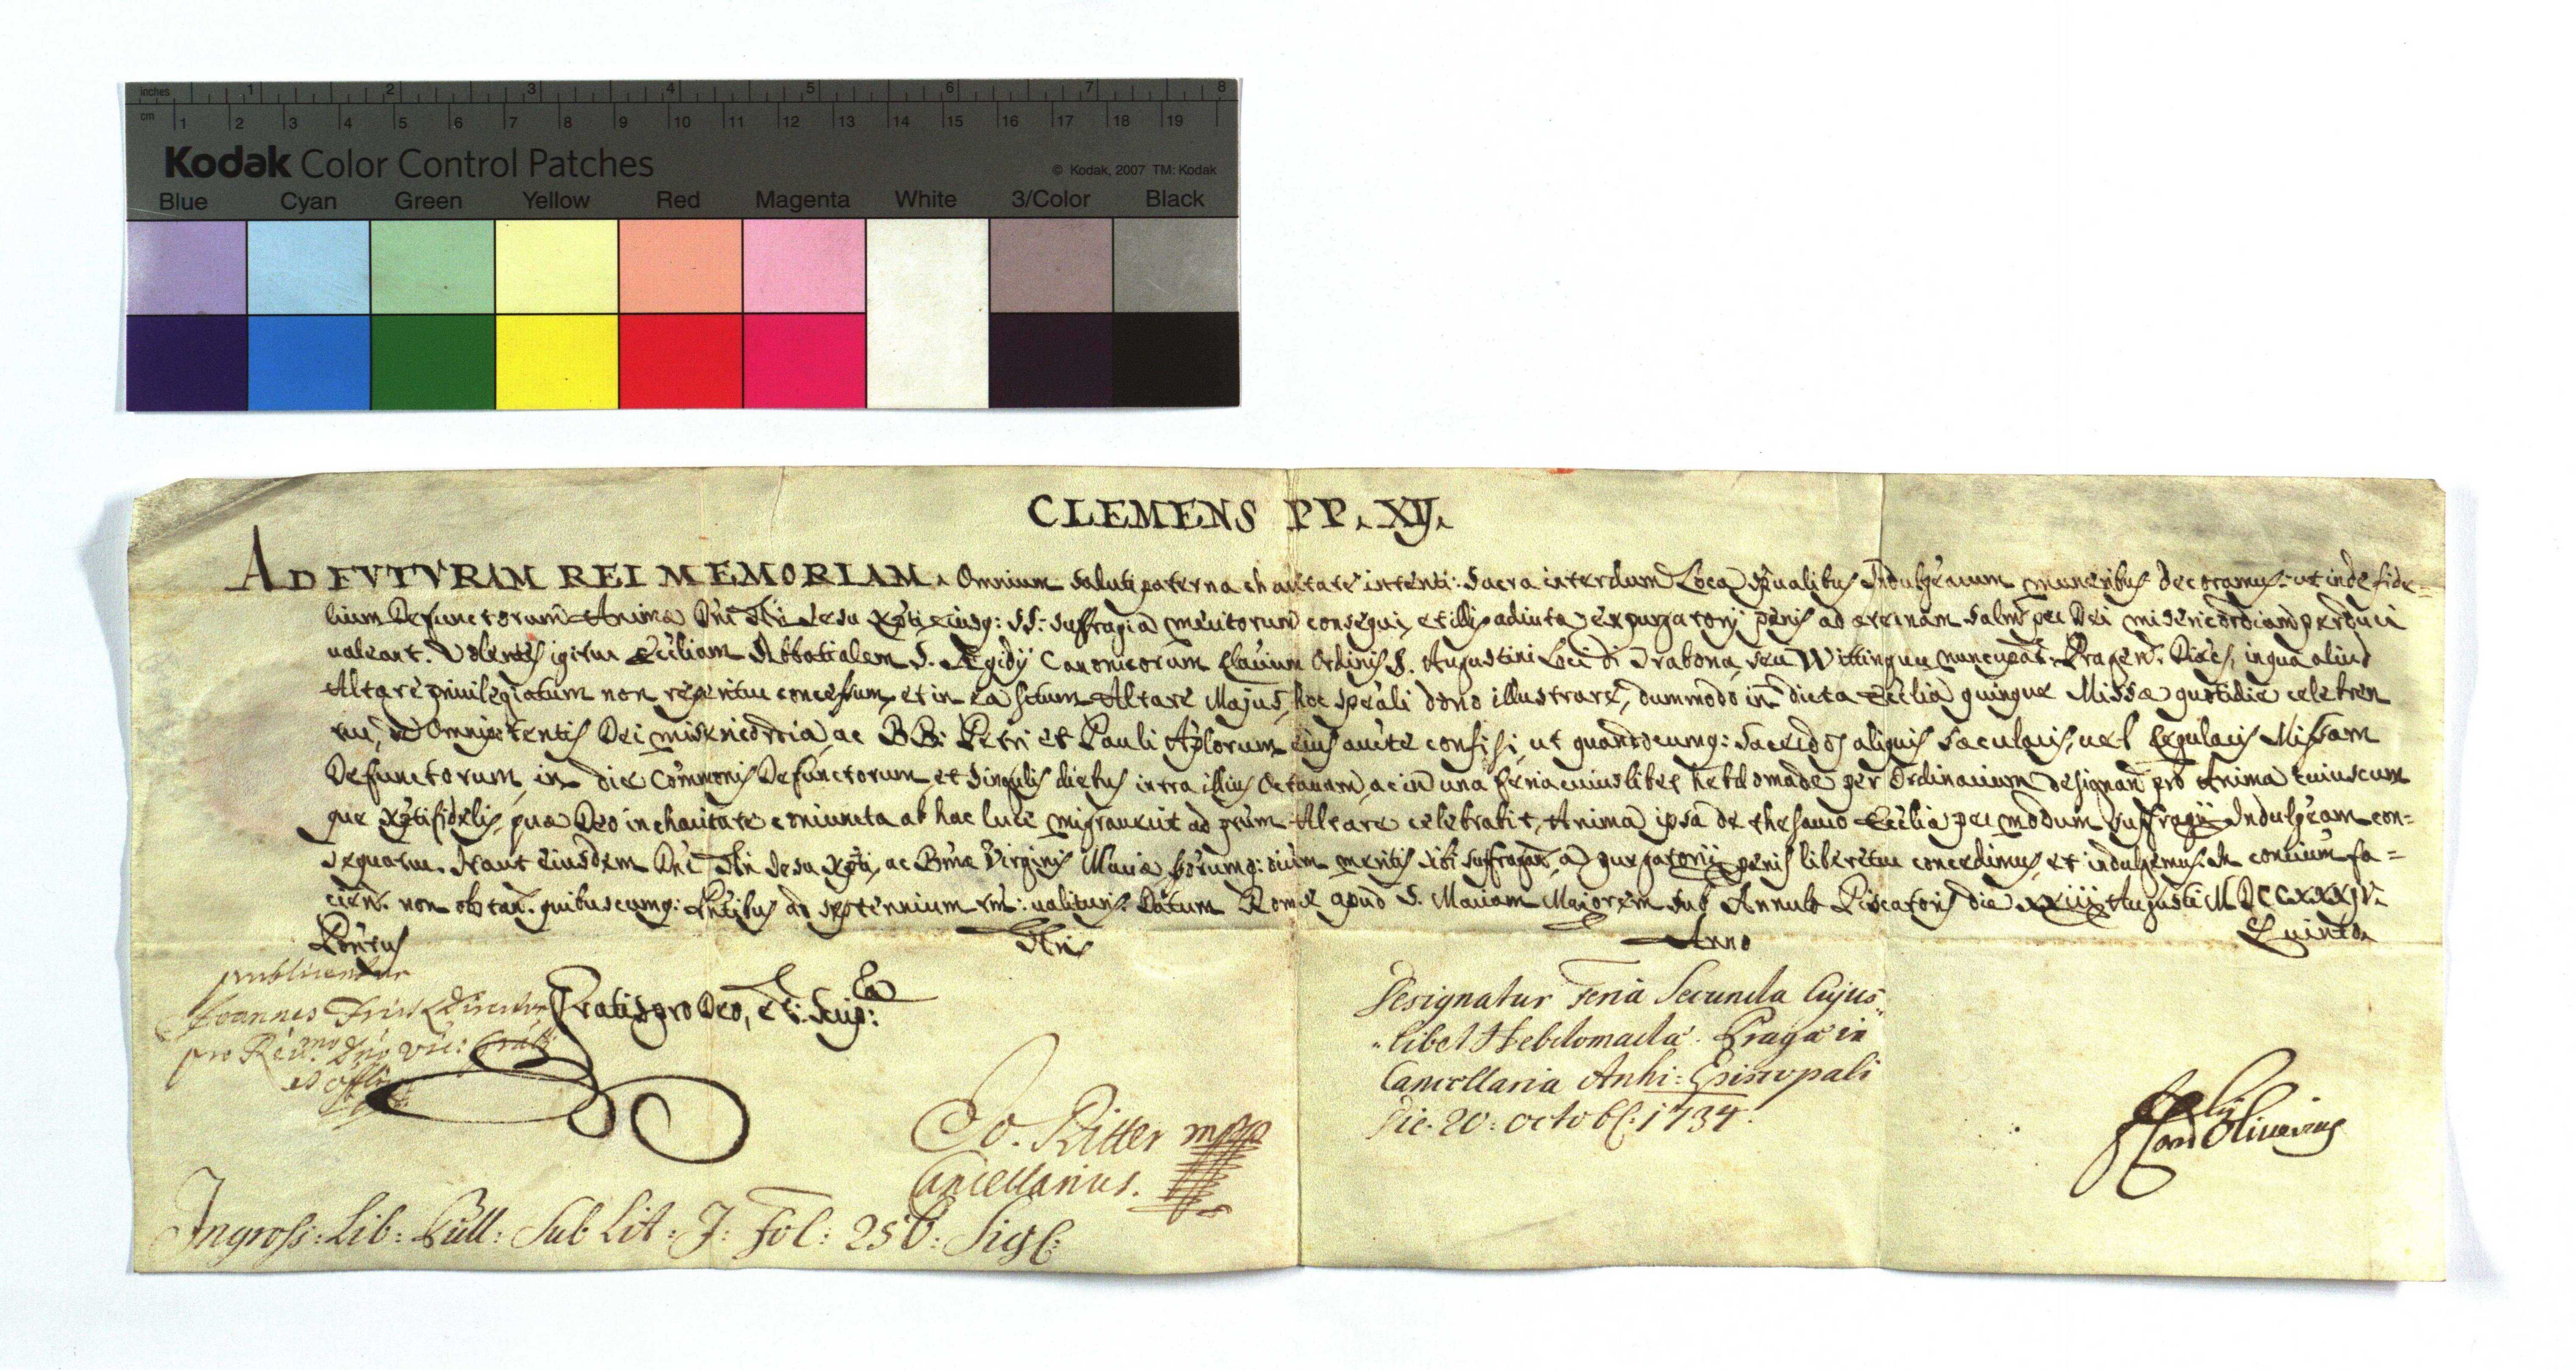 inches 1 2 3 4 5 6 7 8
cm 1 2 3 4 5 6 7 8 9 10 11 12 13 14 15 16 17 18 19
Kodak Color Control Patches
© Kodak, 2007 TM: Kodak
Blue Cyan Green Yellow Red Magenta White 3/Color Black
CLEMENS PP. XIJ.
AD FVTVRAM REI MEMORIAM. Omnium saluti paterna charitate intenti sacra interdum Loca spũalibus Indulgẽarum muneribus decoramus, ut inde fide=
lium Defunctorum Animæ Dñi Ñri Jesu Xp̃ti, eiusq: SS. suffragia meritorum consequi, et illis adiutæ ex purgatorij penis ad æternam salm̃ per Dei misericordiam perduci
ualeant. Volentes igitur Ecc̃liam Abbatialem S. Ægidij Canonicorum Regularium Ordinis S. Augustini Loci de Trabona, seu Wittingau nuncupat. Pragen. Diæc̃, in qua aliud
Altare priuilegiatum non reperitur concessum, et in ea situm Altare Majus, hoc spẽali dono illustrare, dummodo in dicta Ecc̃lia quinque Missæ quotidie celebren
tur, de Omnipotentis Dei misericordia, ac BB. Petri et Pauli Ap̃lorum eius aucte confisi, ut quandocumq: Sacerdos aliquis sæcularis, uel Regularis Missam
Defunctorum in die Com̃m̃onis Defunctorum, et singulis diebus intra illius Octauam, ac in una feria cuiuslibet hebdomadæ per Ordinarium designan. pro Anima cuiuscum
que Xp̃tifidelis, quæ Deo in charitate coniuncta ab hac luce migrauerit ad p̃rum Altare celebrabit, Anima ipsa de thesauro Ecc̃liæ per modum suffragij Indulgẽam con=
sequatur. Ita ut eiusdem Dñi Ñri Jesu Xp̃ti, ac Bm̃æ Virginis Mariæ, Storumq: oium meritis sibi suffragan. a purgatorij penis liberetur concedimus, et indulgemus. In contrium fa=
cien. non obstan. quibuscumq: Pñtibus ad septennium tm̃: ualituris. Datum Romæ apud S. Mariam Maiorem sub Annulo Piscatoris die xxiij Augusti MDCCXXXIV.
Pont̃us Ñri Anno Quinto.
publicentur
Joannes
pro Reu.mo Dño Vic:
Gratis pro Deo, et Scrip:
Designatur Feria Secunda Cujus=
=libet Hebdomadæ. Pragæ in
Cancellaria Archi=Episcopali
Die 20: octobr: 1734.
Jo. Ritter mpp
Cancellarius.
Ingross: Lib: Bull: Sub Lit: J: Fol:
Card Oliuerius